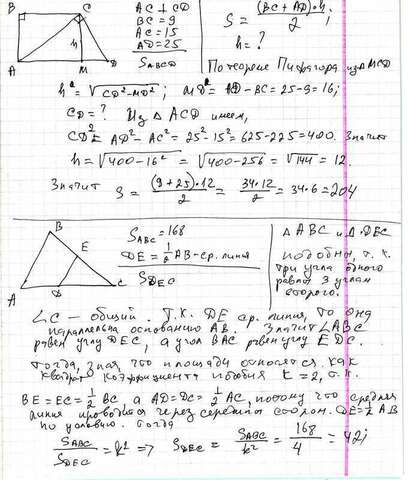 B C
A M D
h
AC ⊥ CD
BC = 9
AC = 15
AD = 25
S_ABCD
S = (BC + AD)·h / 2 ;
h = ?
По теореме Пифагора из MCD
h = √(CD² - MD²) ; MD = AD - BC = 25 - 9 = 16;
CD = ? Из Δ ACD имеем,
CD² = AD² - AC² = 25² - 15² = 625 - 225 = 400. Значит
h = √(400 - 16²) = √(400 - 256) = √144 = 12.
Значит S = (9 + 25)·12 / 2 = 34·12 / 2 = 34·6 = 204
B
E
A D C
S_ABC = 168
DE = 1/2 AB - ср. линия
S_DEC
Δ ABC и Δ DEC
подобны, т. к.
три угла одного
равны 3 углам
второго.
∠C - общий. Т.к. DE ср. линия, то она
параллельна основанию AB. Значит ∠ABC
равен углу DEC, а угол BAC равен углу EDC.
Тогда, зная, что площади относятся как
квадрат коэффициента подобия k = 2, т.к.
BE = EC = 1/2 BC а AD = DC = 1/2 AC, потому что средняя
линия проводится через середины сторон. DE = 1/2 AB
по условию. Тогда
S_ABC / S_DEC = k² => S_DEC = S_ABC / k² = 168 / 4 = 42;